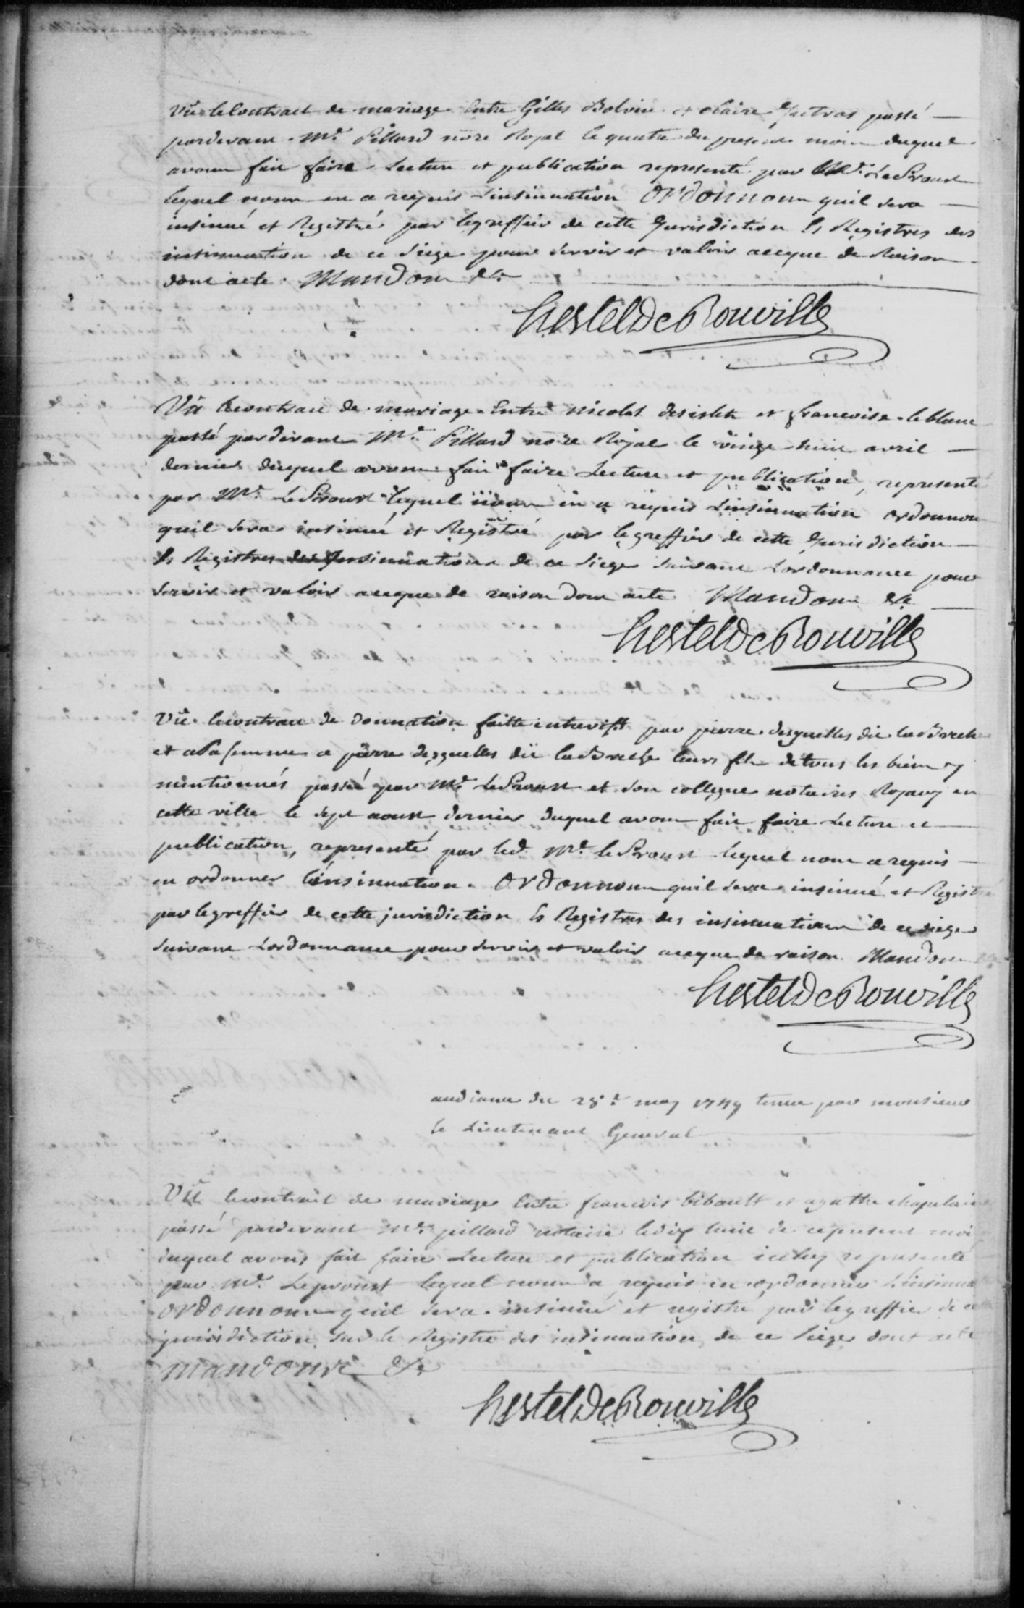 Vû le Contract de mariage Entre Gilles Bolvin et Claire Jutras passé
pardevant Mre Pillard nore Royal le quatre du present mois duquel
avons fait faire Lecture et publication representé par Md. LeProust
lequel nous en a requis Linsinuation Ordonnons quil sera
insinué et Registré par legreffier de cette Jurisdiction Es Registres des
insinuations de ce Siege pour servir et valoir aceque de Raison
dont acte. Mandons &c
hertel De Rouville
Vû Lecontract de mariage Entre nicolas desislets et francoise leblanc
passé pardevant Mre Pillard nore Royal le vingt huit avril
dernier duquel avons fait faire Lecture et publication, representé
par Mre LeProust lequel nous en a requis Linsinuation ordonnons
quil sera insinué et Registré par legreffier de cette Jurisdiction
Es Registres des Insinuations de ce Siege suivant Lordonnance pour
servir et valoir aceque de raison dont acte Mandons &c
hertel De Rouville
Vû Lecontract de donnation faitte entrevifs par pierre desruelles dit
et a sa femme a pierre desruelles dit leurs fils detous les biens y
mentionnés passé par Mre LeProust et son collegue notaires Royaux en
cette ville le sept aoust dernier duquel avons fait faire Lecture et
publication, representé par led. Mre leProust lequel nous a requis
en ordonner Linsinuation. Ordonnons quil sera insinué et Registré
par legreffier de cette jurisdiction Es Registres des insinuations de ce siege
suivant Lordonnance pour servir et valoir aceque de raison Mandons
hertel De Rouville
audiance du 28e may 1749 tenue par monsieur
le Lieutenant General
Vû lecontrait de mariage Entre francois bibault et agathe chapelaine
passé pardevant Mre pillard notaire ledix huit de cepresent mois
duquel avons fait faire Lecture et publication icelluy representé
par Mre Leproust lequel nous a requis en ordonner Linsinua
ordonnons quil sera insinué et registré par legreffier de cette
jurisdiction sur le Registre des insinuation de ce siege dont acte
Mandons &c
hertel De Rouville